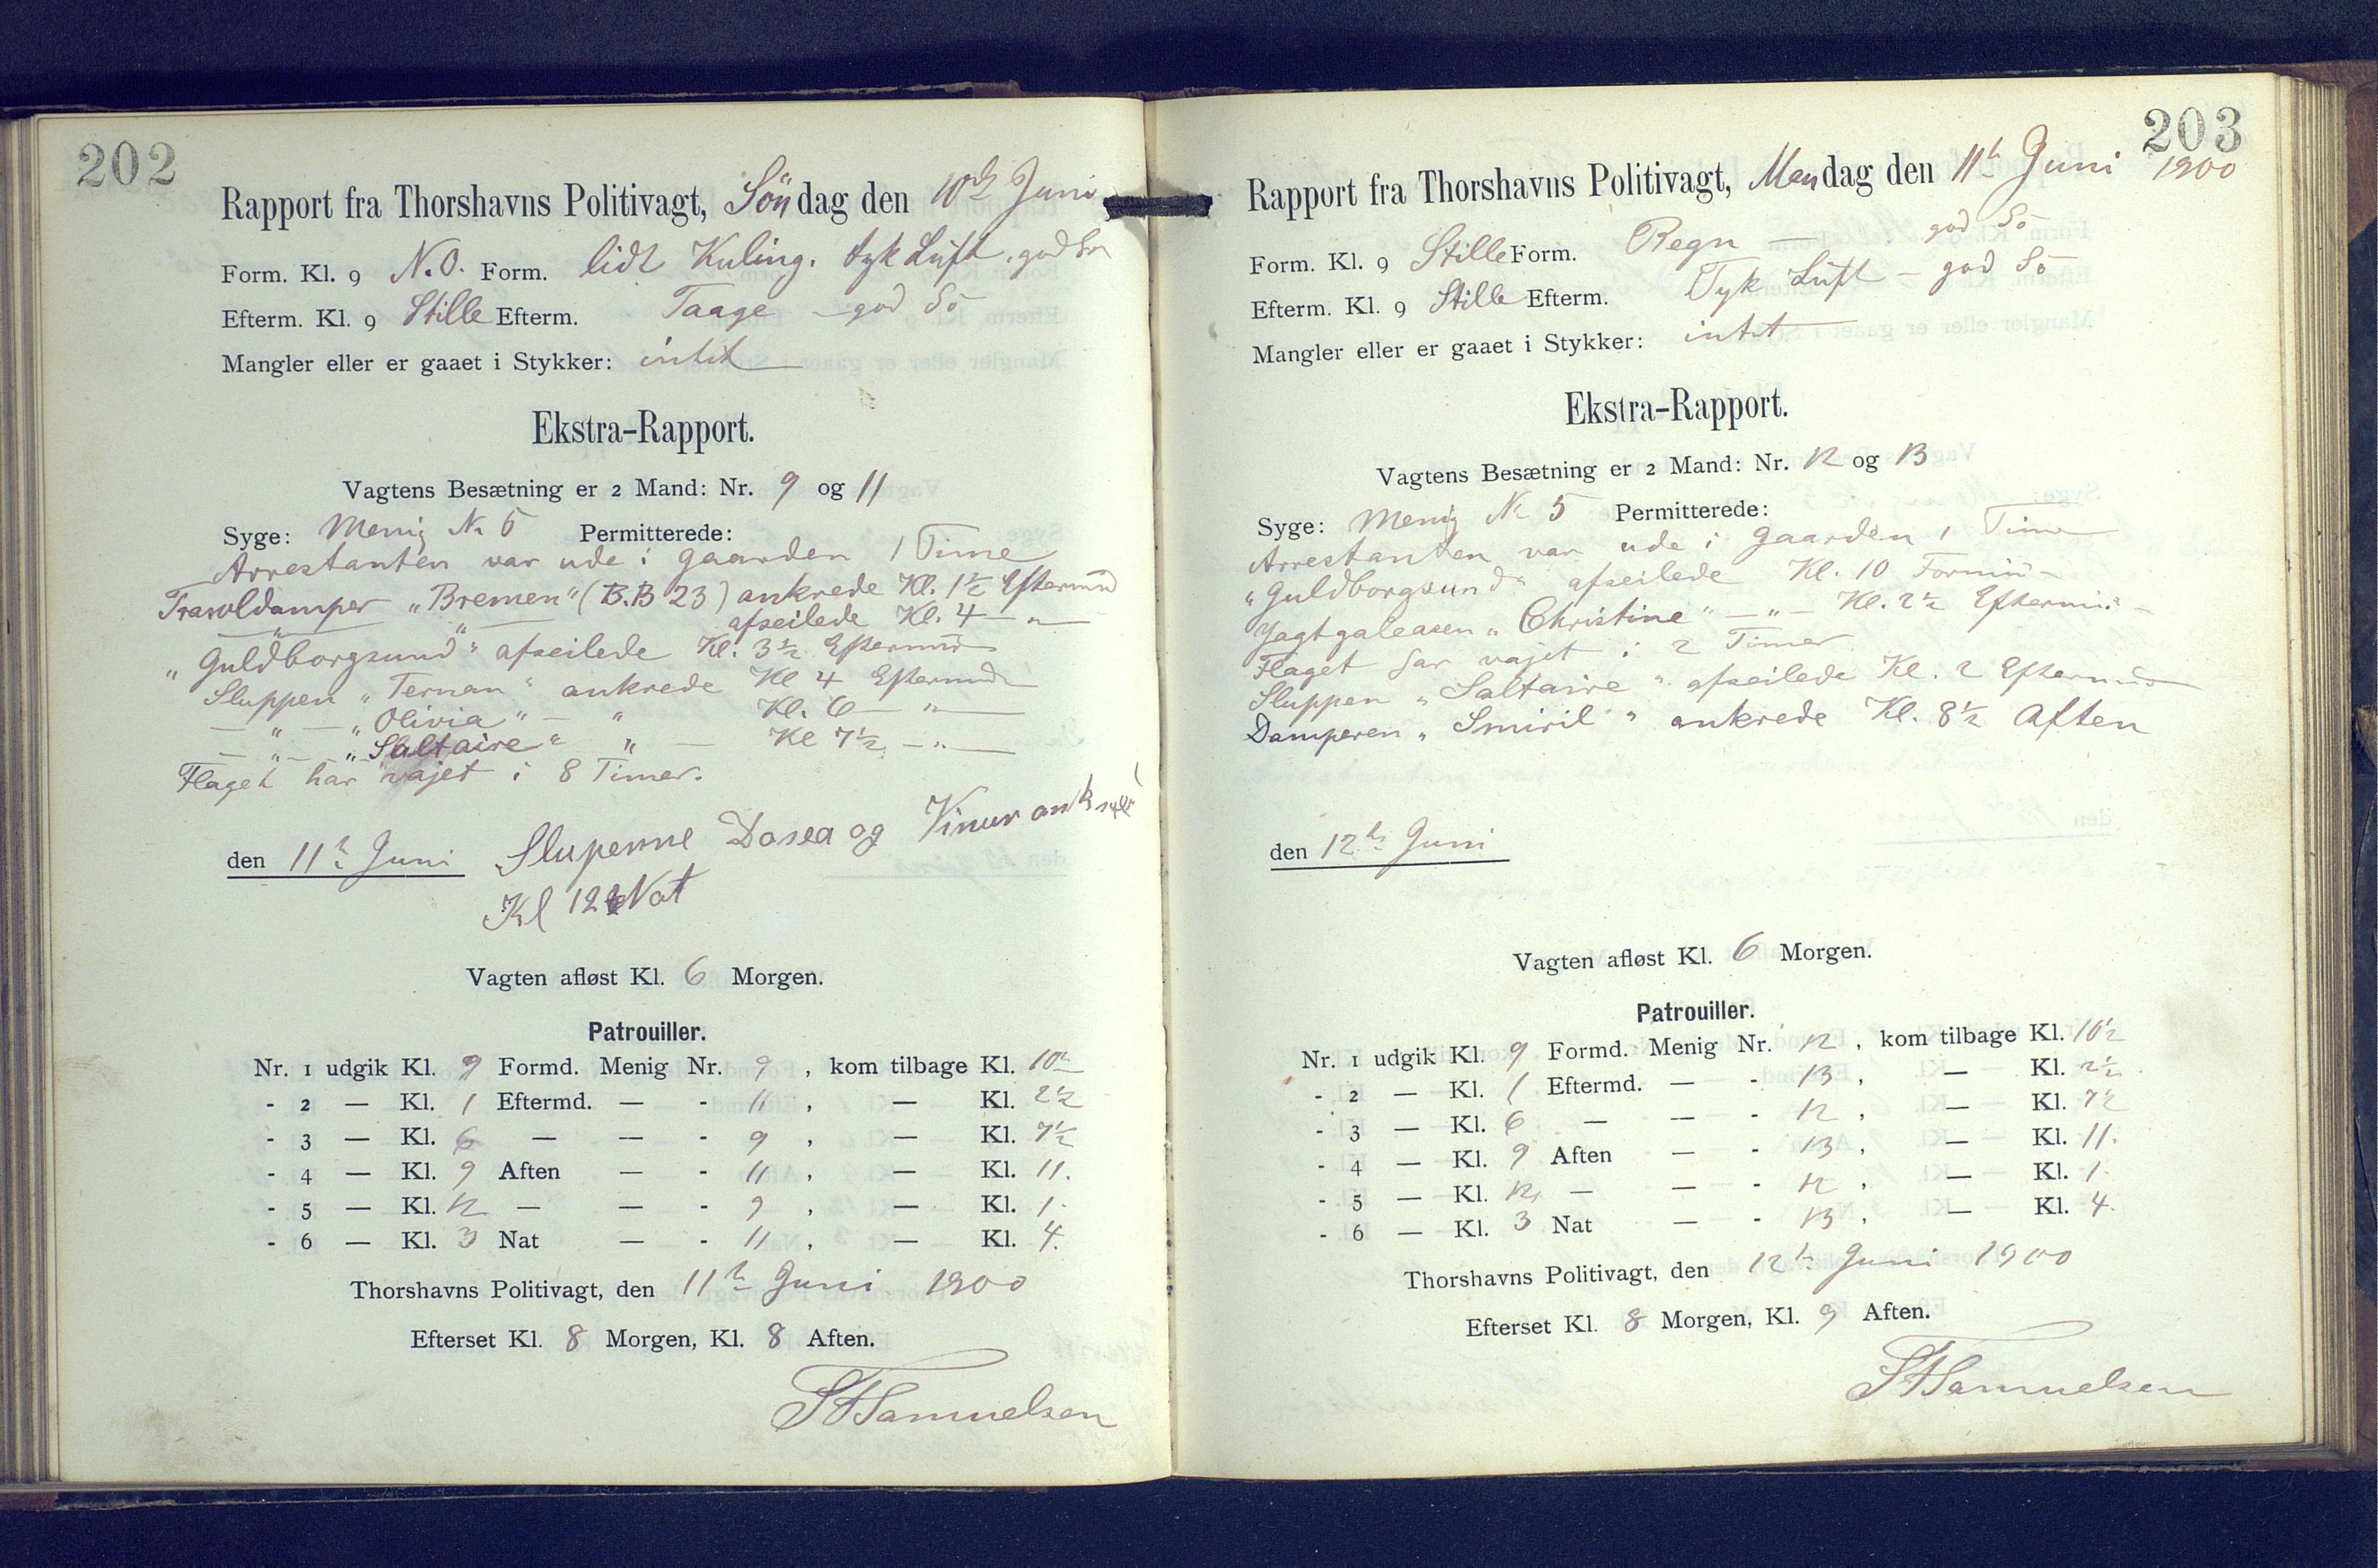 202
Rapport fra Thorshavns Politivagt, Söndag den 10de Juni
Form. Kl. 9 N.O. Form. lidt Kuling. tyk Luft. god Sö
Efterm. Kl. 9 Stille Efterm. Taage — god Sö
Mangler eller er gaaet i Stykker: intet
Ekstra-Rapport.
Vagtens Besætning er 2 Mand: Nr. 9 og 11
Syge: Menig No 5 Permitterede:
Arrestanten var ude i Gaarden 1 Time
Trawldamper „Bremen“ (B.B 23) ankrede Kl. 1½ Eftermd
— „ — „ — afseilede Kl. 4 — „ —
„Guldborgsund“ afseilede Kl. 3½ Eftermd
Sluppen „Ternan“ ankrede Kl 4 Eftermd
— „ — „Olivia“ — „ Kl. 6 — „ —
— „ — „Saltaire“ „ — Kl 7½ — „ —
Flaget har vajet i 8 Timer.
den 11te Juni Sluperne Dosea og Vinur ankrede
Kl 12 Nat
Vagten afløst Kl. 6 Morgen.
Patrouiller.
Nr. 1 udgik Kl. 9 Formd. Menig Nr. 9 , kom tilbage Kl. 10½
- 2 — Kl. 1 Eftermd. — - 11 , — Kl. 2½
- 3 — Kl. 6 — — - 9 , — Kl. 7½
- 4 — Kl. 9 Aften — - 11 , — Kl. 11.
- 5 — Kl. 12 — — - 9 , — Kl. 1.
- 6 — Kl. 3 Nat — - 11 , — Kl. 4.
Thorshavns Politivagt, den 11te Juni 1900
Efterset Kl. 8 Morgen, Kl. 8 Aften.
SFSamuelsen
203
Rapport fra Thorshavns Politivagt, Mandag den 11te Juni 1900
Form. Kl. 9 Stille Form. Regn — god Sö
Efterm. Kl. 9 Stille Efterm. Tyk Luft — god Sö
Mangler eller er gaaet i Stykker: intet
Ekstra-Rapport.
Vagtens Besætning er 2 Mand: Nr. 12 og 13
Syge: Menig No 5 Permitterede:
Arrestanten var ude i Gaarden 1 Time
„Guldborgsund“ afseilede Kl. 10 Formd
Jagtgaleasen „Christine“ — „ — Kl. 2½ Eftermd
Flaget har vajet i 2 Timer
Sluppen „Saltaire“ afseilede Kl. 2 Eftermd
Damperen „Smiril“ ankrede Kl. 8½ Aften
den 12te Juni
Vagten afløst Kl. 6 Morgen.
Patrouiller.
Nr. 1 udgik Kl. 9 Formd. Menig Nr. 12 , kom tilbage Kl. 10½
- 2 — Kl. 1 Eftermd. — - 13 , — Kl. 2½
- 3 — Kl. 6 — — - 12 , — Kl. 7½
- 4 — Kl. 9 Aften — - 13 , — Kl. 11.
- 5 — Kl. 12 — — - 12 , — Kl. 1
- 6 — Kl. 3 Nat — - 13 , — Kl. 4.
Thorshavns Politivagt, den 12te Juni 1900
Efterset Kl. 8 Morgen, Kl. 9 Aften.
SFSamuelsen